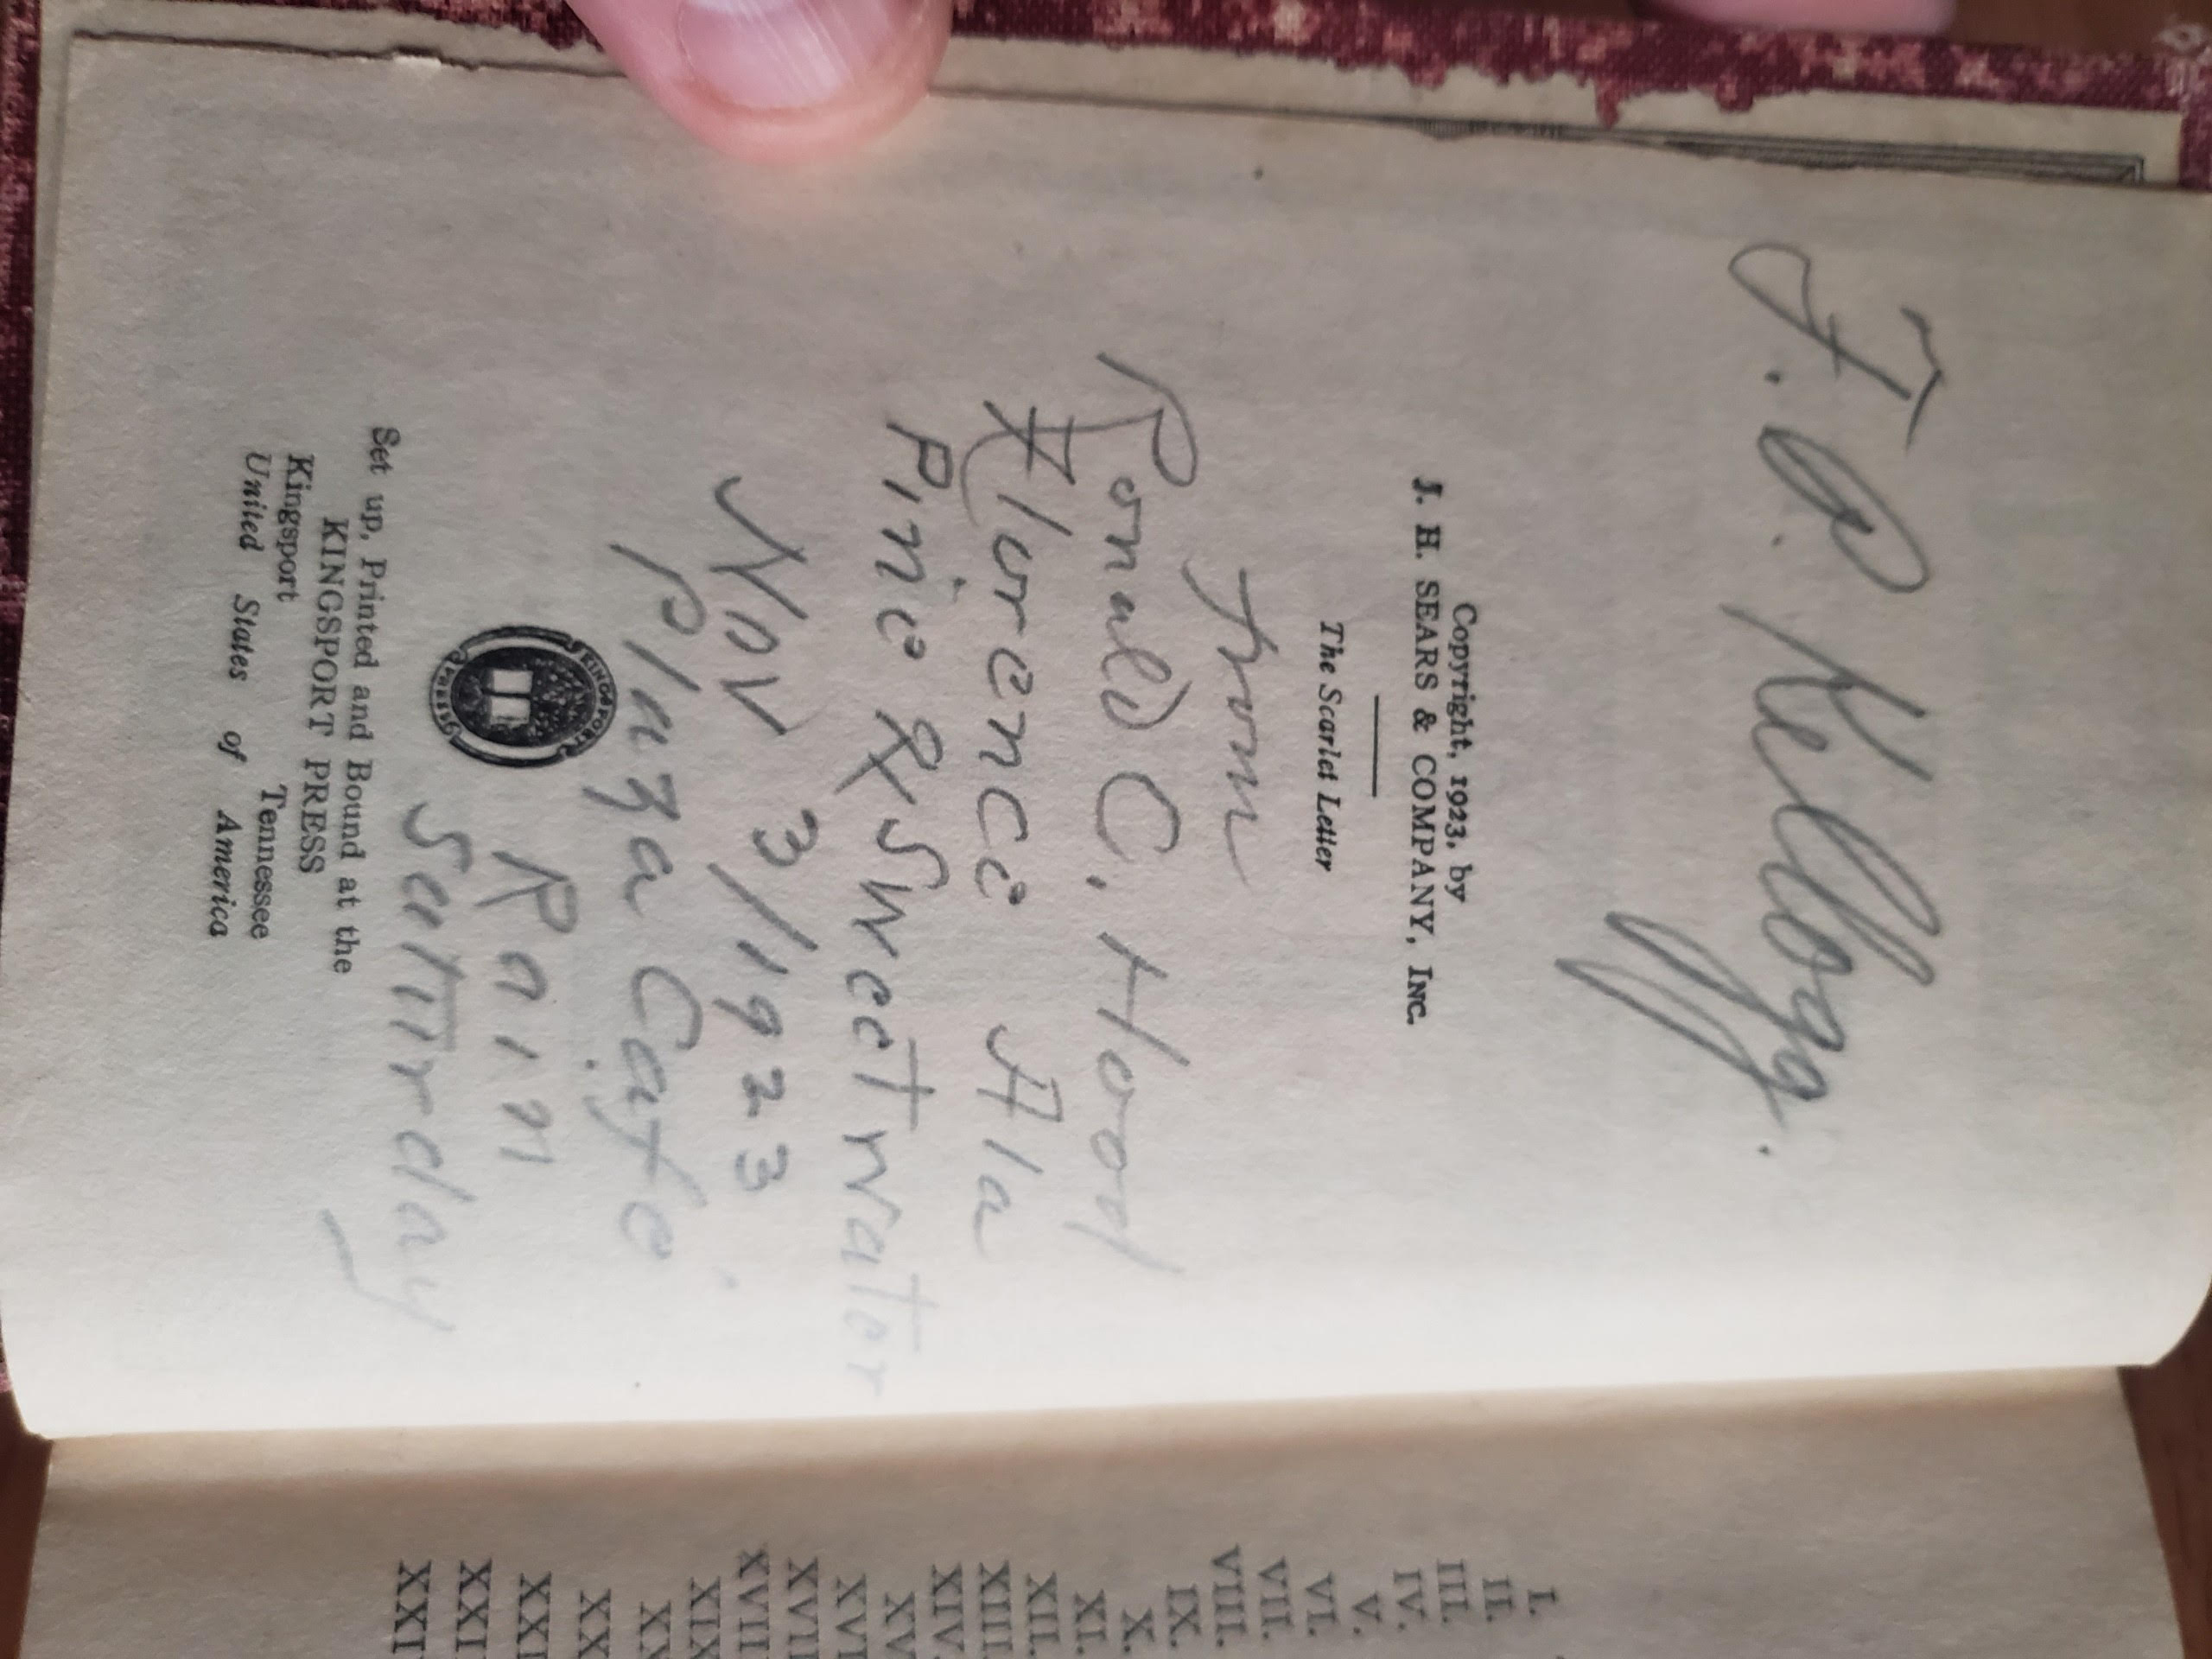 J. P. Kellogg.
Copyright, 1923, by
J. H. SEARS & COMPANY, INC.
The Scarlet Letter
from
Ronald C. Hood
Florence Ala
Pine & Sweetwater
Nov 3/1923
Plaza Cafe
Rain
Saturday
KINGSPORT PRESS
Set up, Printed and Bound at the
KINGSPORT PRESS
Kingsport Tennessee
United States of America
I.
II.
III.
IV.
V.
VI.
VII.
VIII.
IX.
X.
XI.
XII.
XIII.
XIV.
XV.
XVI
XVII
XVIII
XIX
XX
XX
XXI
XXI
XXI